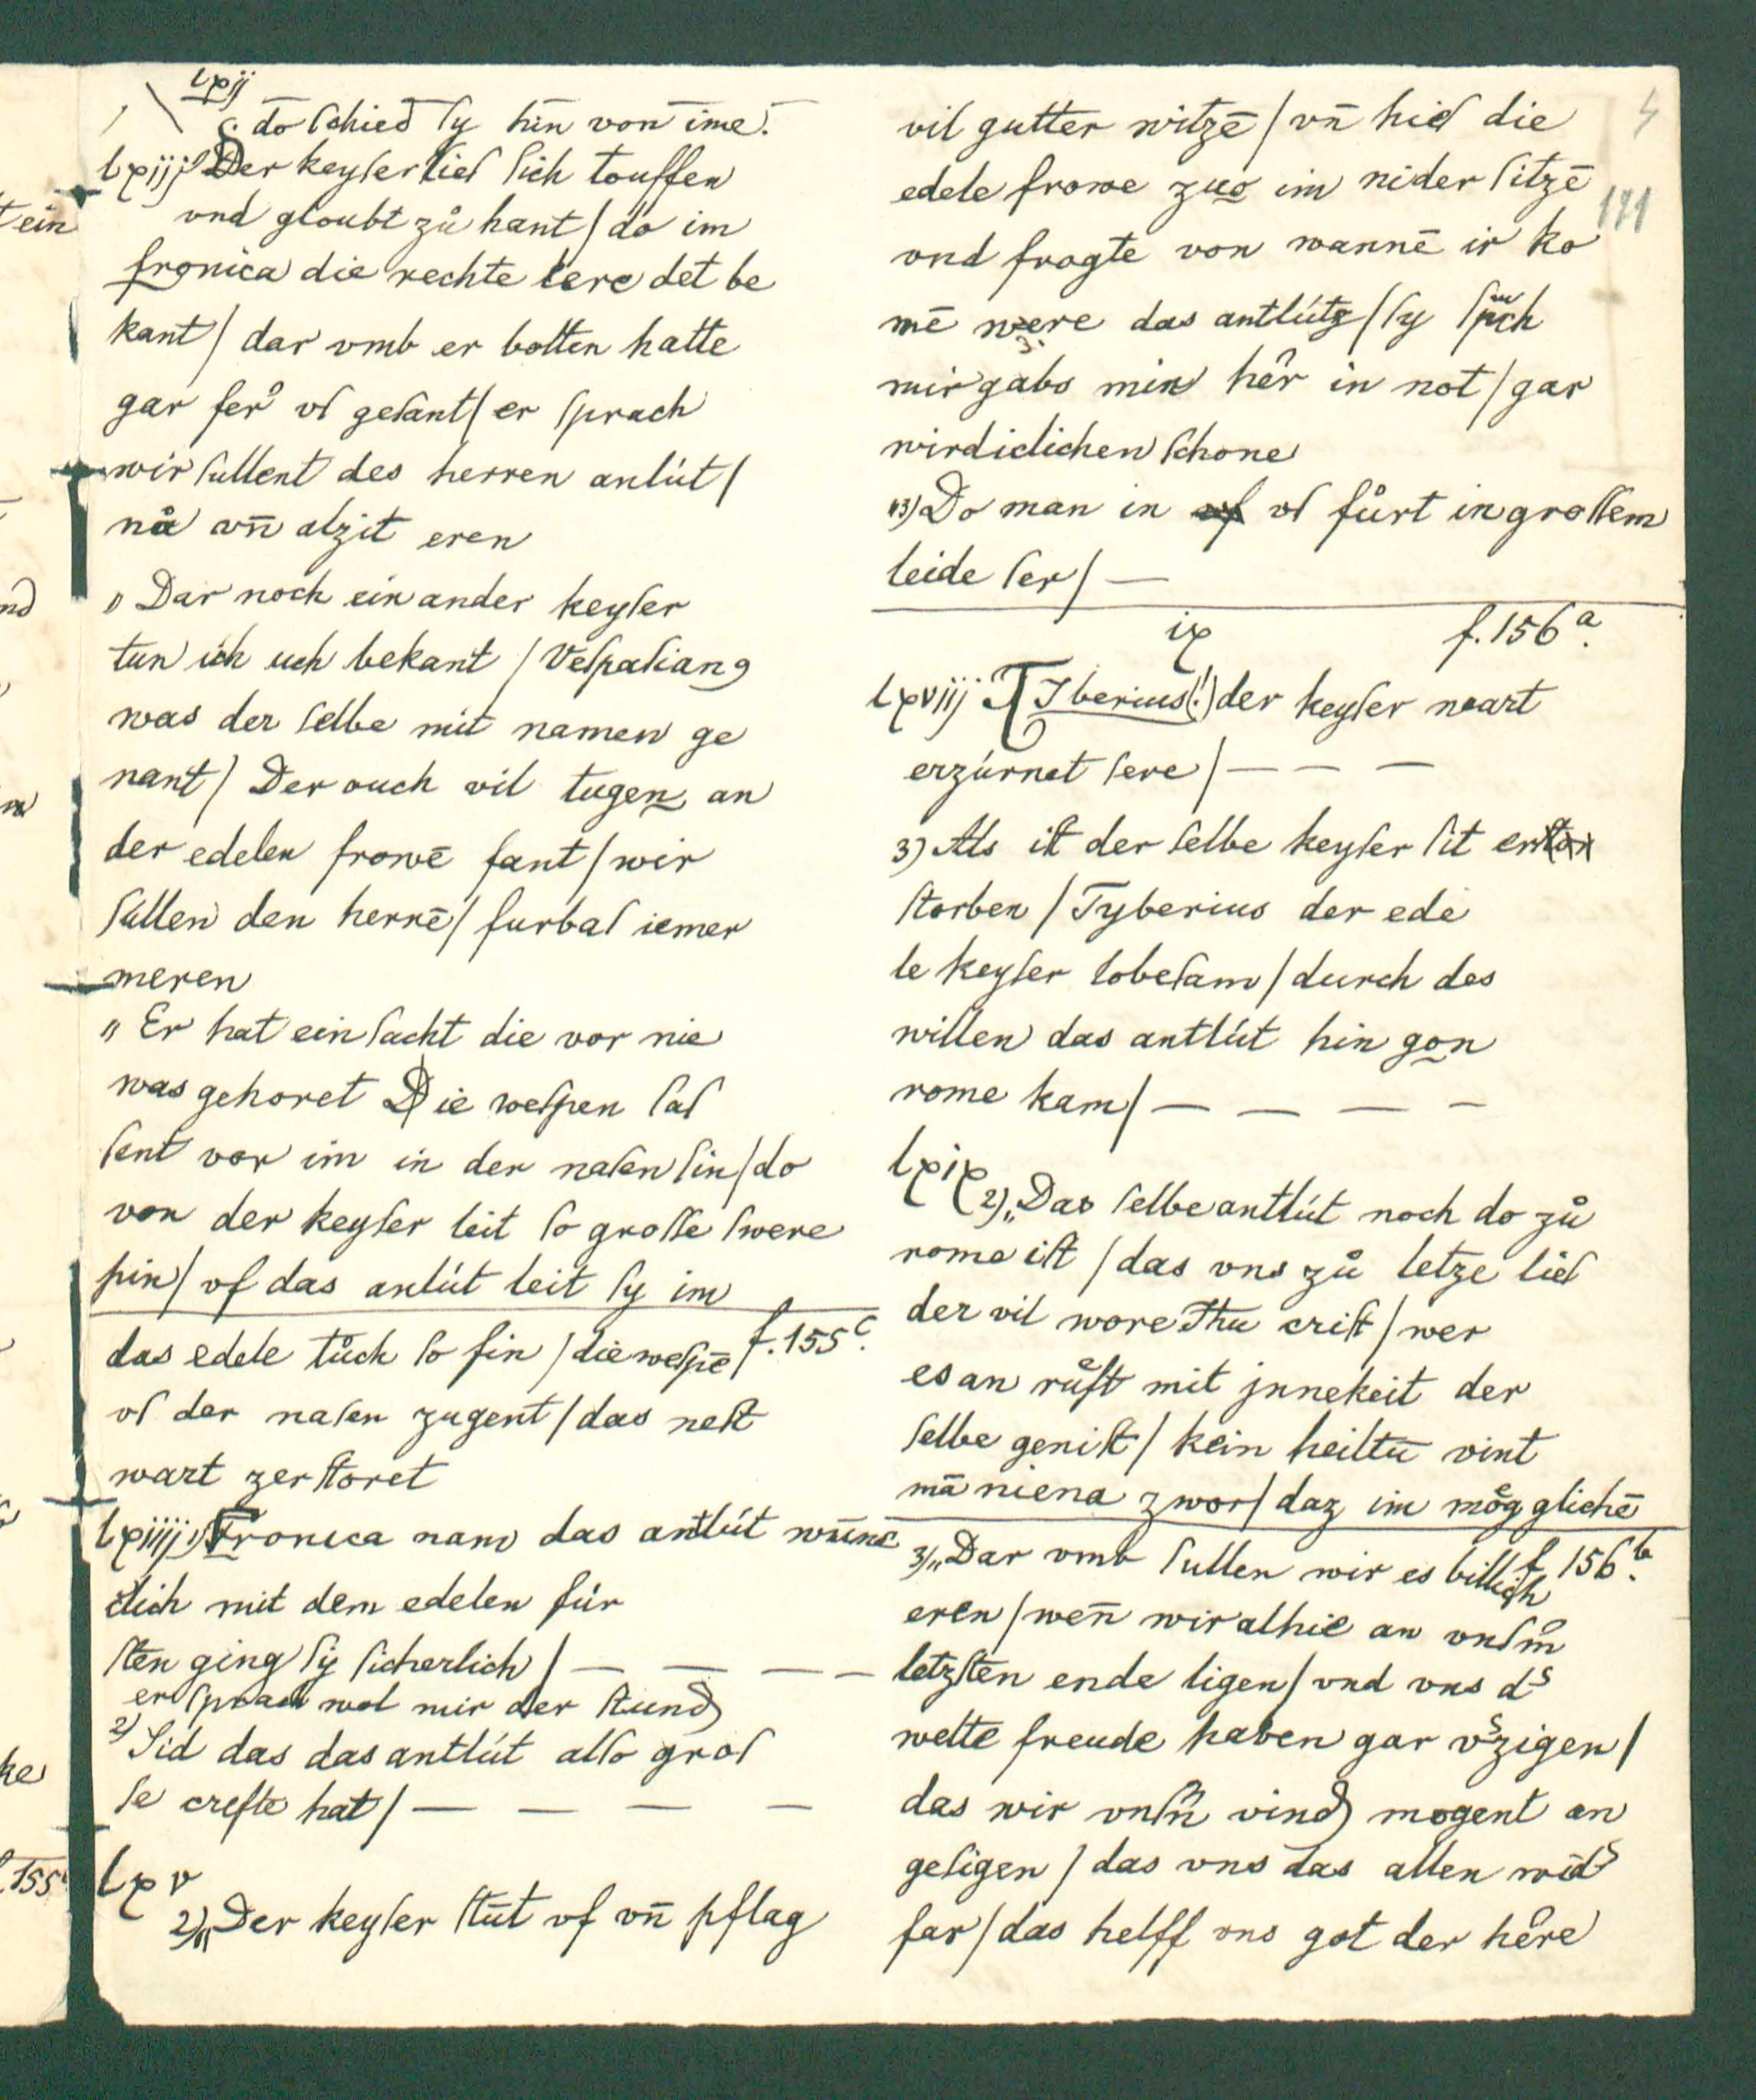 lxij
do schied sy hin von ime.
lxiij Der keyser lies sich touffen
vnd gloubt zů hant / do im
fronica die rechte lere det be
kant / dar vmb er botten hatte
gar fer vs gesant / er sprach
wir sullent des herren anlút /
nů vn̄ alzit eren
Dar noch ein ander keyser
tun ich uch bekant / Vespasian9
was der selbe mit namen ge
nant / Der ouch vil tugen an
der edelen frowē fant / wir
sullen den herrē / furbas iemer
meren
" Er hat ein sacht die vor nie
was gehoret Die wespen sas
sent vor im in der nasen sin / do
von der keyser leit so grosse swere
pin / vf das anlút leit sy im
f. 155c.
das edele tůch so fin / die wespē
vs der nasen zugent / das nest
wart zerstoret
lxiiij 1) Fronica nam das antlút wūne
clich mit dem edelen für
sten ging sy sicherlich / — — — —
er sprach wol mir der stund
2) Sid das das antlút also gros
se crefte hat / — — — —
lxv
2) „Der keyser stūt vf vn̄ pflag
vil gutter witzē / vn̄ hies die
edele frowe zuo im nider sitzē
vnd fragte von wannē ir ko
mē were das antlútz / sy spch
mir gabs min hêr in not / gar
wirdiclichen schone
3) Do man in vs fůrt in grossem
leide ser / —
ix f. 156a.
lxviij TIberius (!) der keyser wart
erzúrnet sere / — — —
3) Als ist der selbe keyser sit er
storben / Tyberius der ede
le keyser lobesam / durch des
willen das antlút hin gon
rome kam / — — — —
lxix
2) „Das selbe antlút noch do zů
rome ist / das vns zů letze lies
der vil wore Jhu crist / wer
es an růft mit jnnekeit der
selbe genist / kein heiltū vint
mā niena zwor / daz im mögglichē
f 156b.
3) „Dar vmb sullen wir es billich
eren / wen̄ wir alhie an vnsm
letzsten ende ligen / vnd vns ds
welte freude haben gar vszigen /
das wir vnsn vind mogent an
gesigen / das vns das allen wids
far / das helff vns got der hêre
4
191